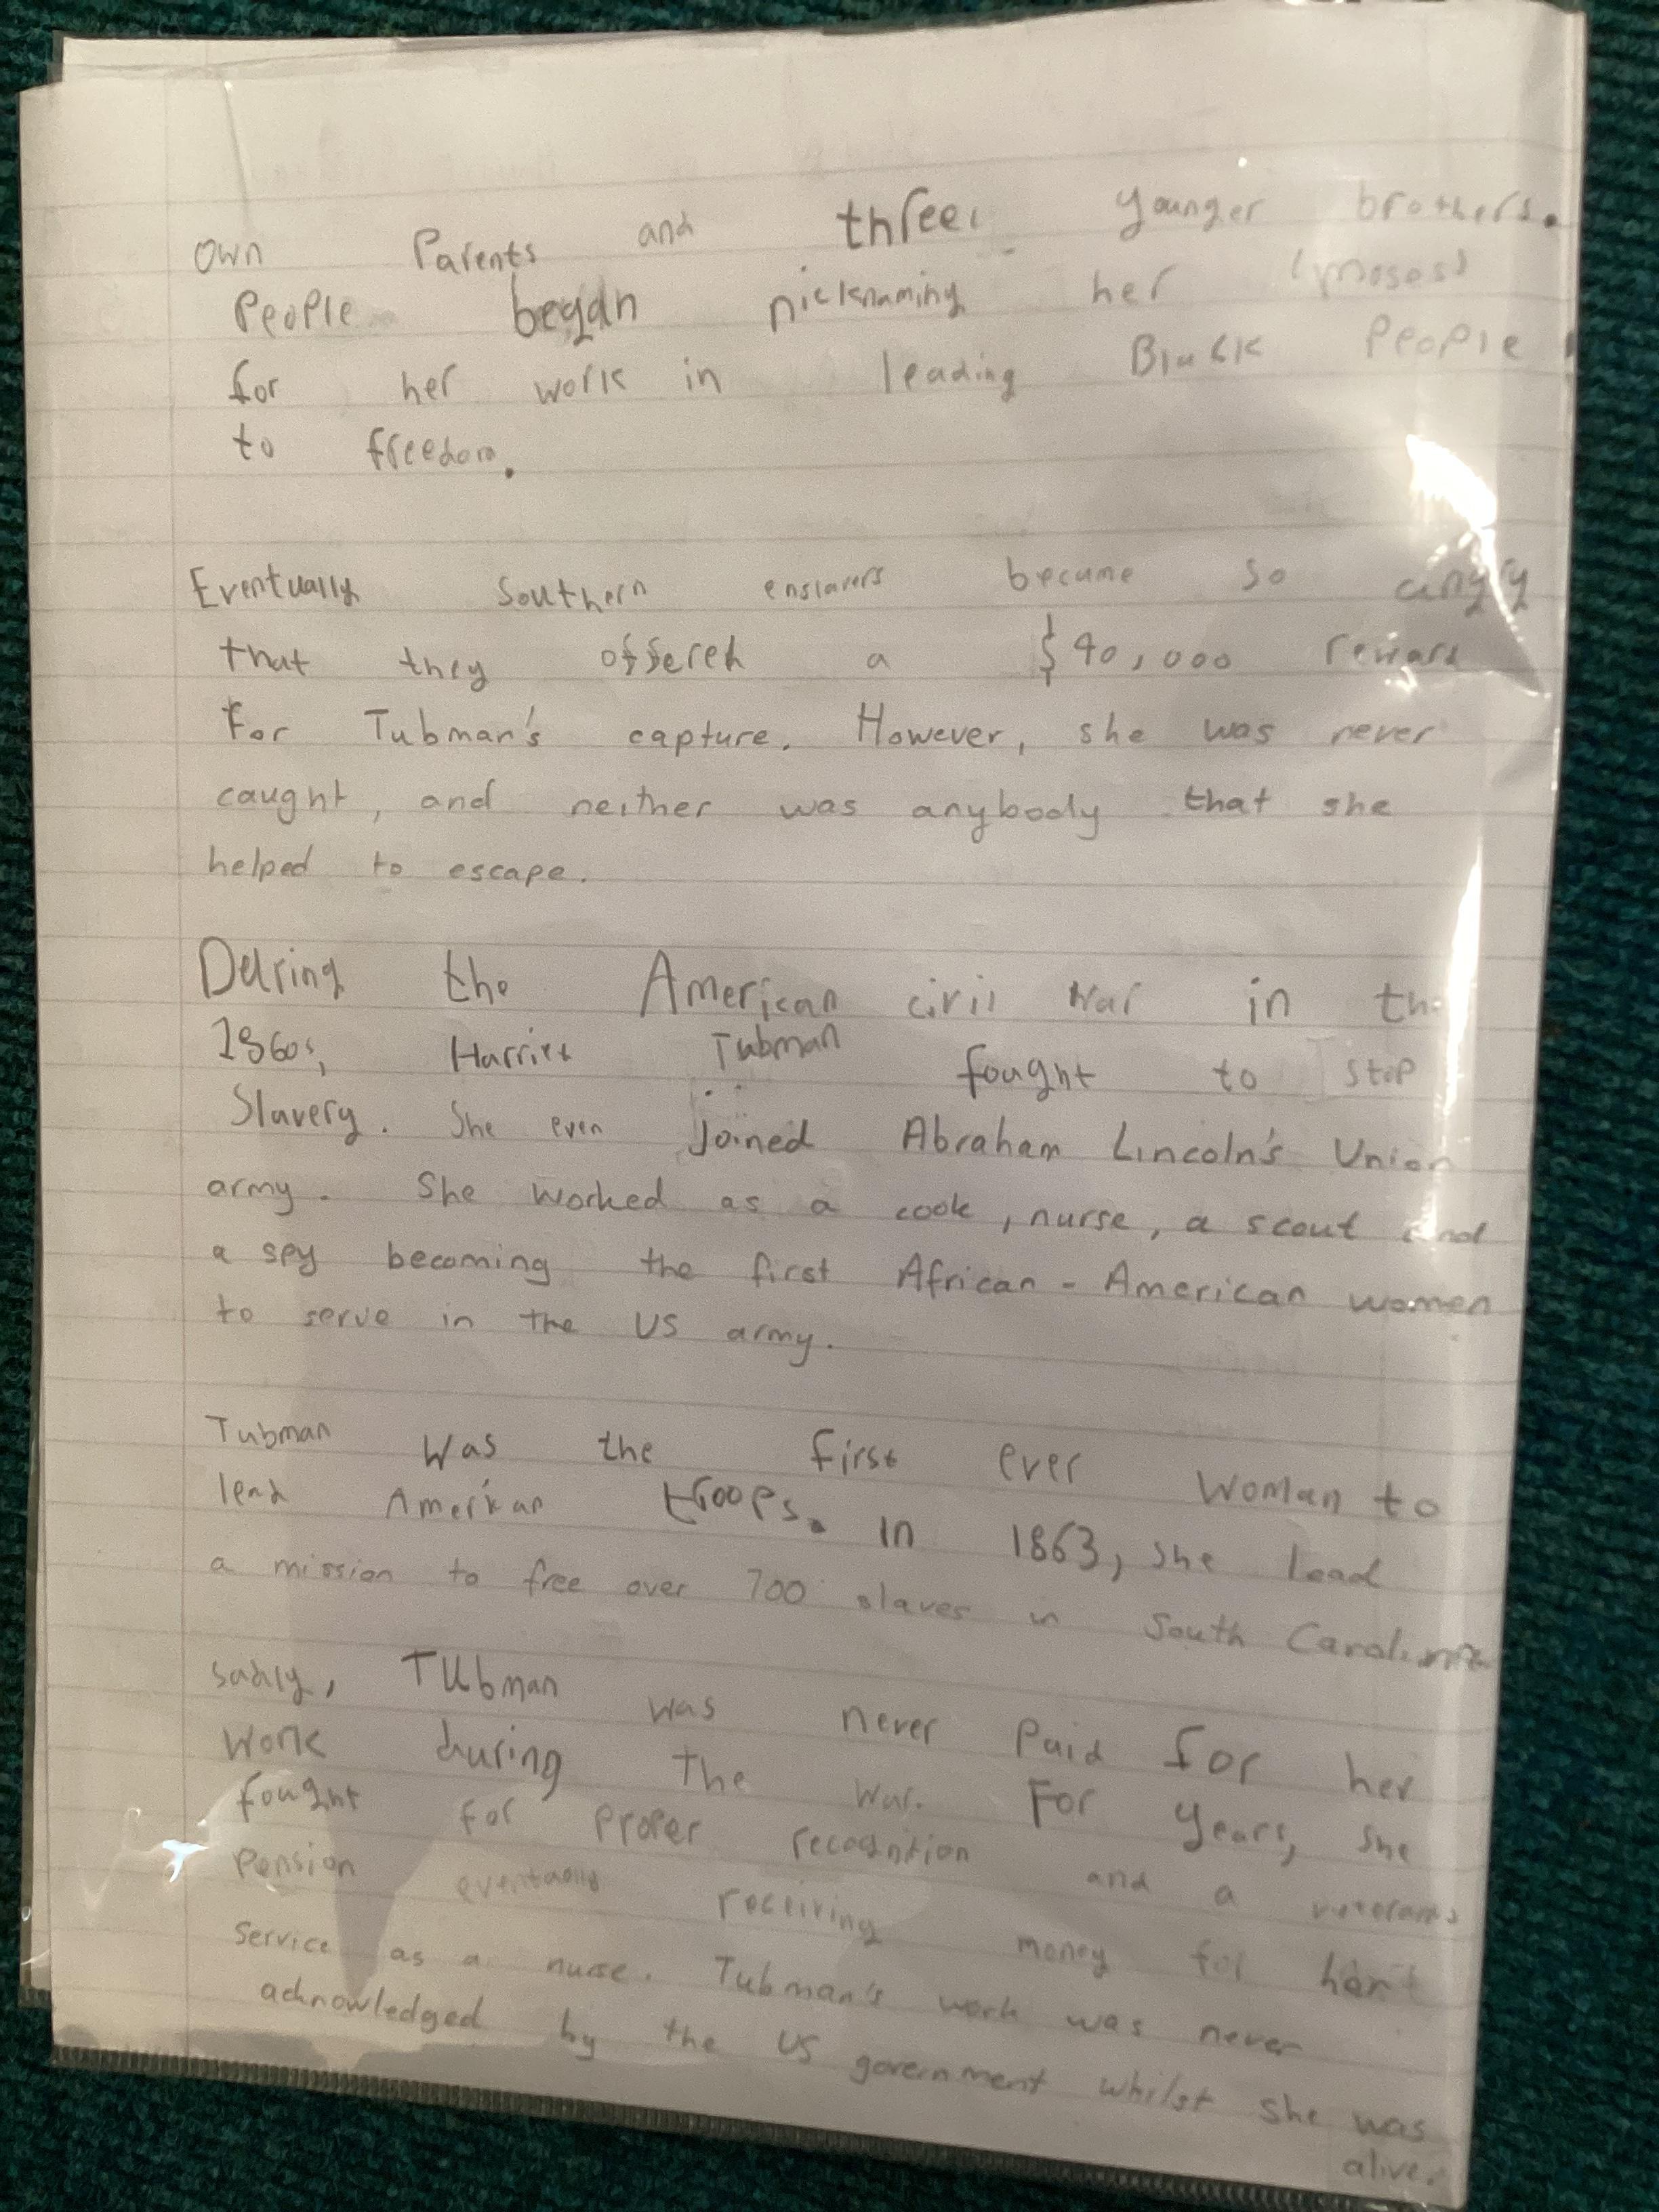 own Parents and three younger brothers.
People began nicknaming her 'moses'
for her work in leading Black People
to freedom.
Eventually Southern enslavers became so angry
that they offered a $40,000 reward
For Tubman's capture. However, she was never
caught, and neither was anybody that she
helped to escape.
During the American civil war in the
1860s, Harriet Tubman fought to stop
Slavery. She even joined Abraham Lincoln's Union
army. She worked as a cook, nurse, a scout and
a spy becoming the first African-American women
to serve in the US army.
Tubman was the first ever woman to
lead American troops. In 1863, she lead
a mission to free over 700 slaves in South Carolina
sadly, Tubman was never Paid for her
work during the war. For years, she
fought for proper recogntion and a veterans
Pension eventually receiving money for her
service as a nurse. Tubman's work was never
acknowledged by the US government whilst she was
alive.